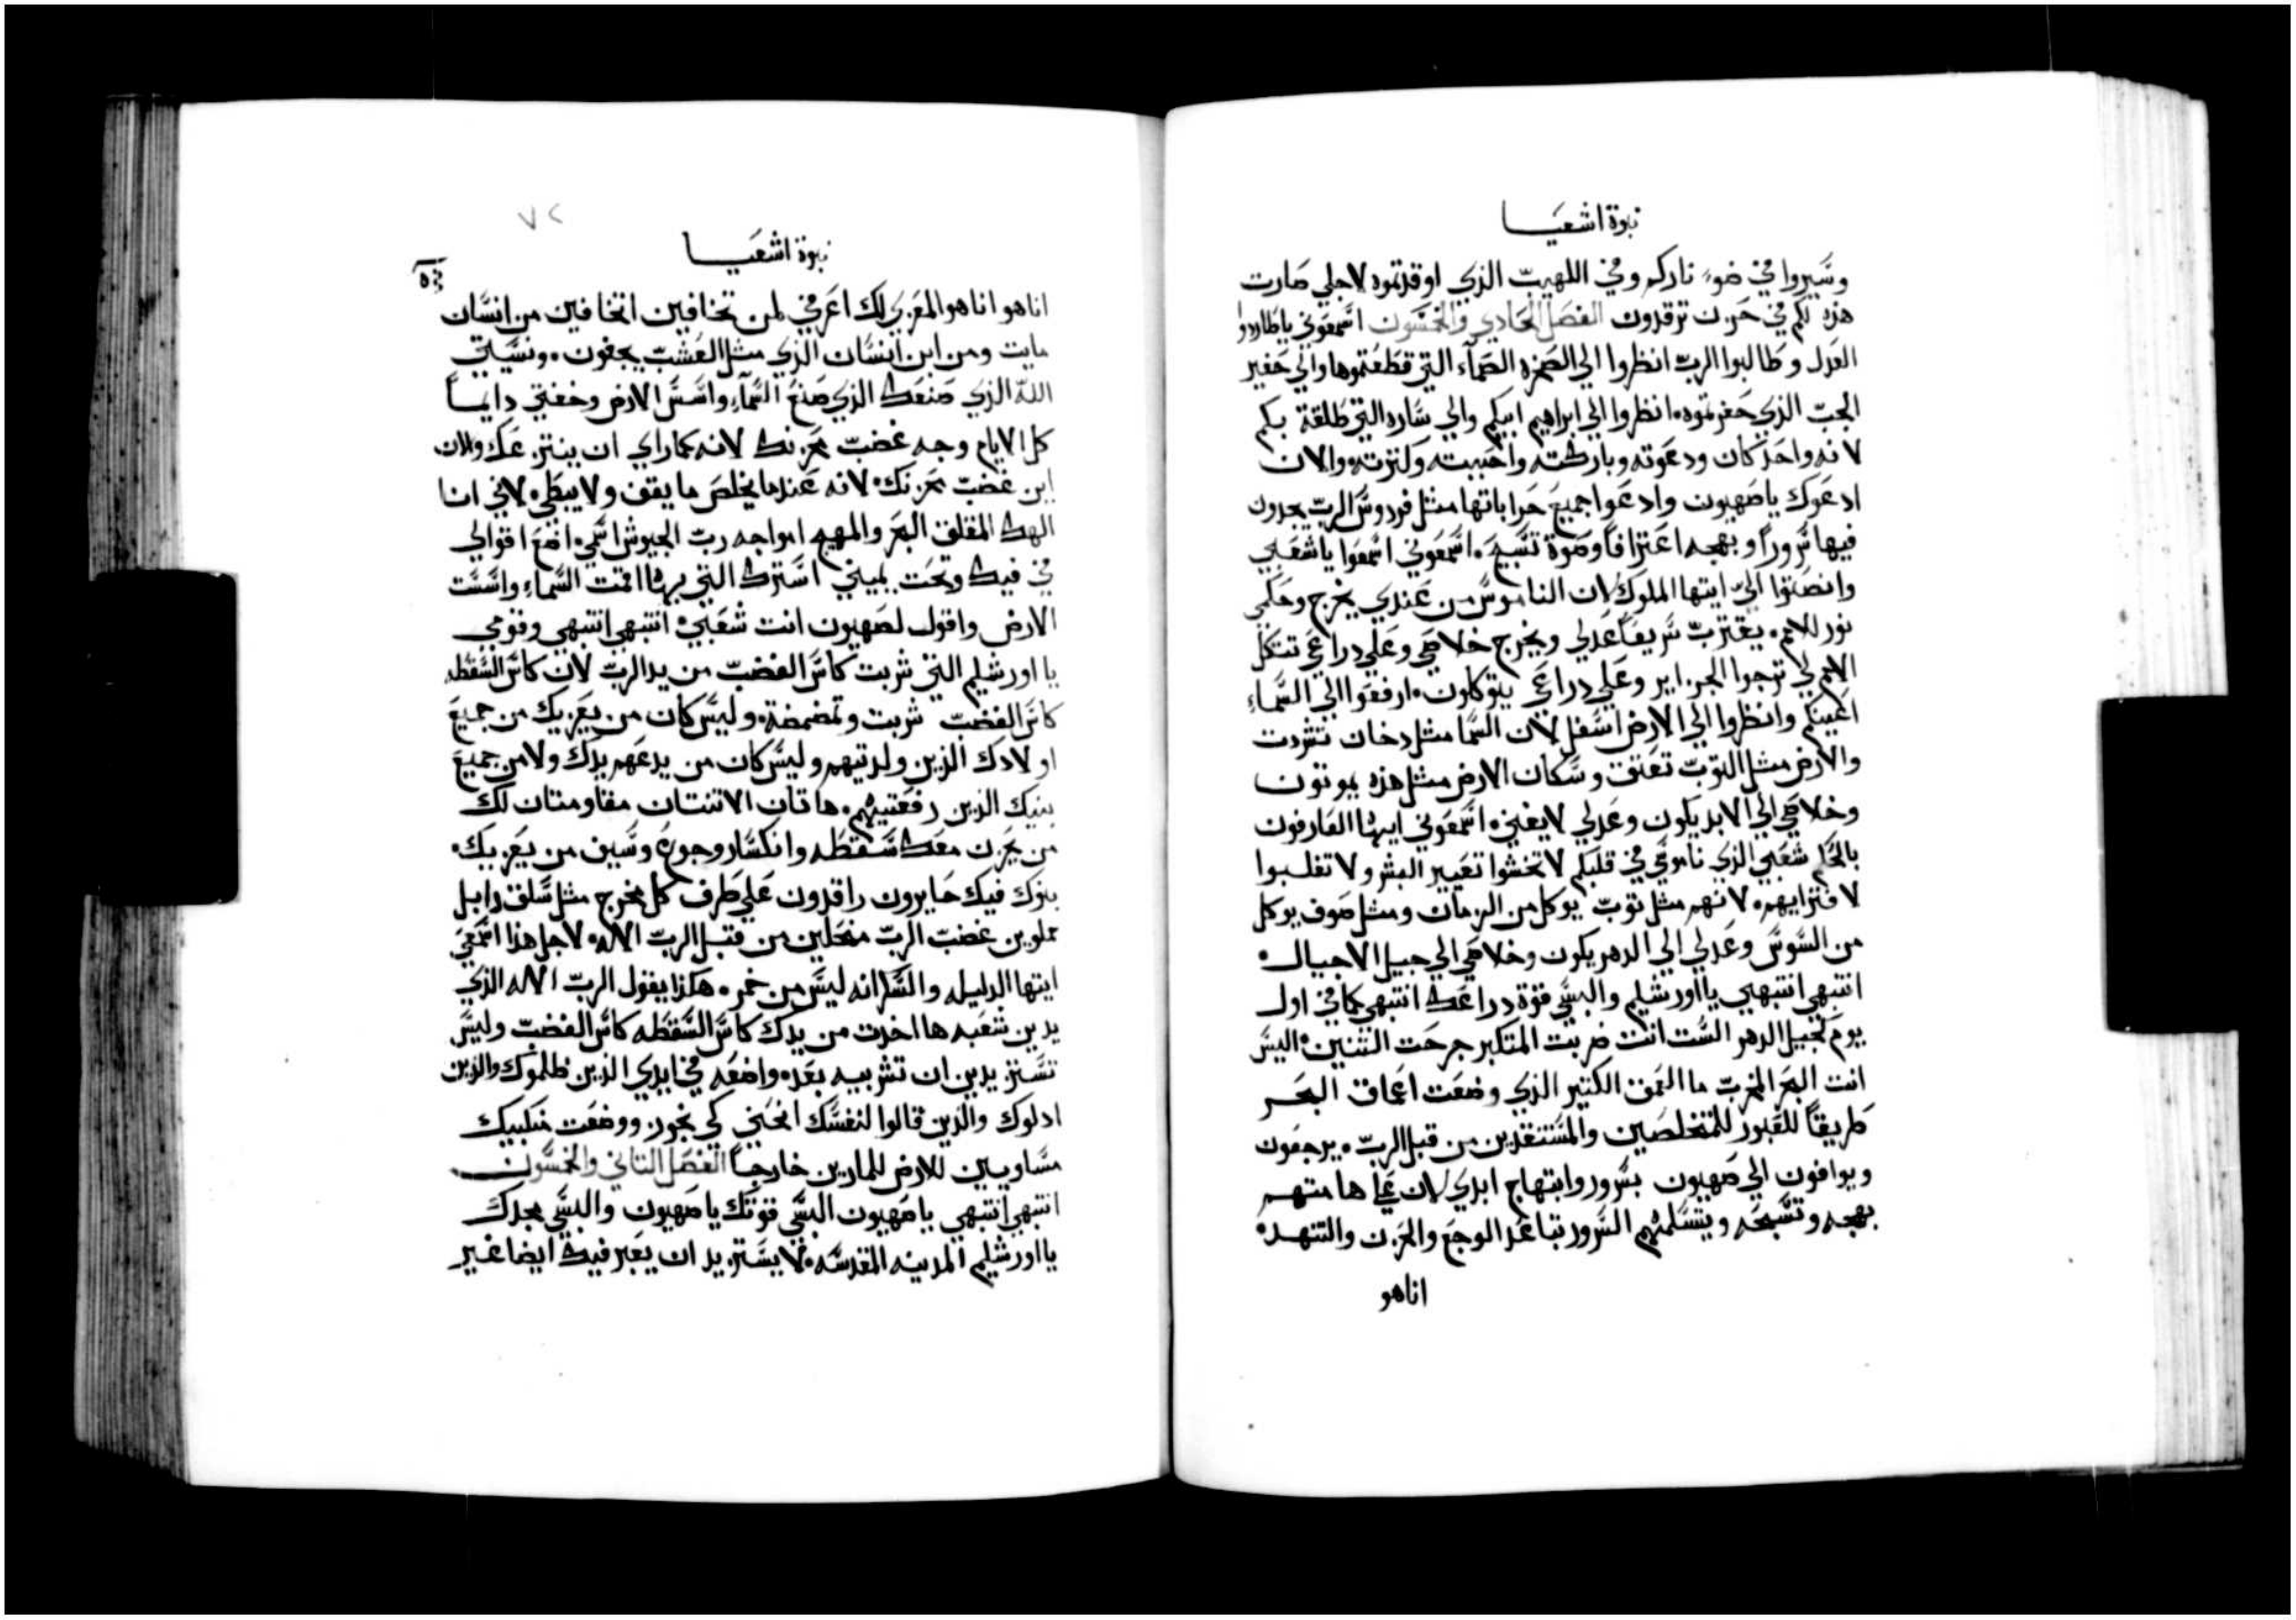 نبوة اشعيا
وسيروا في ضوء ناركم وفي اللهيب الذي اوقدتموه لاجلي صارت
هذه لكم في حزن ترقدون الفصل الحادي والخمسون اسمعوني يا طاردوا
العدل وطالبوا الرب انظروا الي الصخره الصمآء التي قطعتموها والي حفير
الجب الذي حفرتموه انظروا الي ابراهيم ابيكم والي ساره التي طلقة بكم
لانه واحد كان ودعوته وباركته واحببته وكثرته والان
ادعوك يا صهيون وادعوا جميع خراباتها مثل فردوس الرب يجدون
فيها سروراً وبهجه اعترافاً وصوة تسبيح اسمعوني اسمعوا يا شعبي
وانصتوا الي ايتها الملوك لان الناموس من عندي يخرج وحكمي
نور للامم يقترب سريعاً عدلي ويخرج خلاصي وعلي دراعي تتكل
الامم لي ترجوا الجزاير وعلي دراعي يتوكلون ارفعوا الي السماء
اعينكم وانظروا الي الارض اسفل لان السما مثل دخان تشردت
والارض مثل التوب تعتق وسكان الارض مثل هذه يموتون
وخلاصي الي الابد يكون وعدلي لا يفني اسمعوني ايها العارفون
بالحكم شعبي الذي ناموسي في قلبكم لا تخشوا تعيير البشر ولا تغلبوا
لافترايهم لانهم مثل توب يوكل من الزمان ومثل صوف يوكل
من السوس وعدلي الي الدهر يكون وخلاصي الي جيل الاجيال
انتبهي انتبهي يا اورشليم والبسي قوة دراعك انتبهي كما في اول
يوم كجيل الدهر الست انت ضربت المتكبر جرحت التنين اليس
انت البحر المخرب ما العمق الكثير الذي وضعت اعماق البحر
طريقاً للعبور للمتخلصين والمستنقدين من قبل الرب يرجعون
ويوافون الي صهيون بسرور وابتهاج ابدي لان علي هامتهم
بهجه وتسبحه ويتسلمهم السرور تباعد الوجع والحزن والتنهد
اناهو
٧٢
نبوة اشعيا
اناهو اناهو المعزي لك اعرفي لمن تخافين اتخافين من انسان
مايت ومن ابن انسان الذي مثل العشب يجفون ونسيتي
الله الذي صنعك الذي صنع السمآء واسس الارض وخفتي دايماً
كل الايام وجه غضب محزنك لانه كما راي ان ينتزعك والان
اين غضب محزنك لانه عندما يخلص ما يقف ولا يبطي لاني انا
الهك المقلق البحر والمهيج امواجه رب الجيوش اسمي اضع اقوالي
في فيك وتحت يميني استرك التي بها اقمت السماء واسست
الارض واقول لصهيون انت شعبي انتبهي انتبهي وقومي
يا اورشليم التي شربت كاس الغضب من يد الرب لان كاس السقطه
كاس الغضب شربت وتمضمضة وليس كان من يعزيك من جميع
اولادك الذين ولدتيهم وليس كان من يدعم يدك ولا من جميع
بنيك الذين رفعتيهم هاتان الاتنتان مقاومتان لك
من يحزن معك سقطه وانكسار وجوع وسيف من يعزيك
بنوك فيك حايرون راقدون علي طرف كل مخرج مثل سلق دابل
مملوين غضب الرب منحلين من قبل الرب الاله لاجل هذا اسمعي
ايتها الدليله والسكرانه ليس من خمر هكذا يقول الرب الاله الذي
يدين شعبه ها اخدت من يدك كاس السقطه كاس الغضب وليس
تستزيدين ان تشربيه بعد واضعه في ايدي الذين ظلموك والذين
ادلوك والذين قالوا لنفسك انحني كي نجوز ووضعت منكبيك
مساويين للارض للمارين خارجاً الفصل التاني والخمسون
انتبهي انتبهي يا صهيون البسي قوتك يا صهيون والبسي مجدك
يا اورشليم المدينه المقدسه لا يستزيد ان يعبر فيك ايضا غير